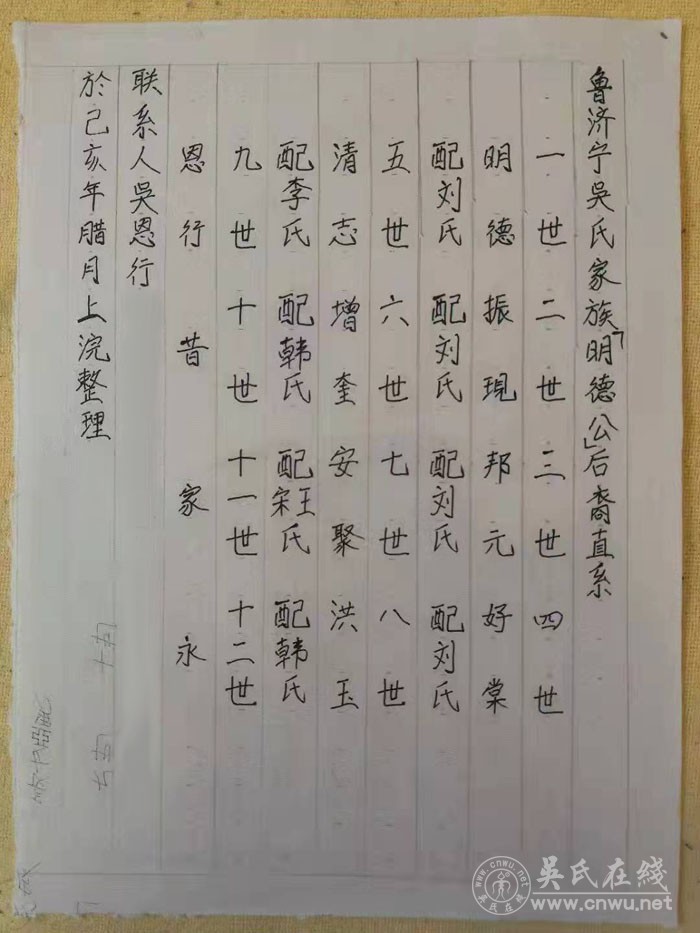 鲁济宁吴氏家族「明德公」后裔直系
一世 二世 三世 四世
明德 振现 邦元 好棠
配刘氏 配刘氏 配刘氏 配刘氏
五世 六世 七世 八世
清志 增奎 安聚 洪玉
配李氏 配韩氏 配宋王氏 配韩氏
九世 十世 十一世 十二世
恩行 昔 家 永
联系人吴恩行
於己亥年腊月上浣整理
吴氏在线
www.cnwu.net